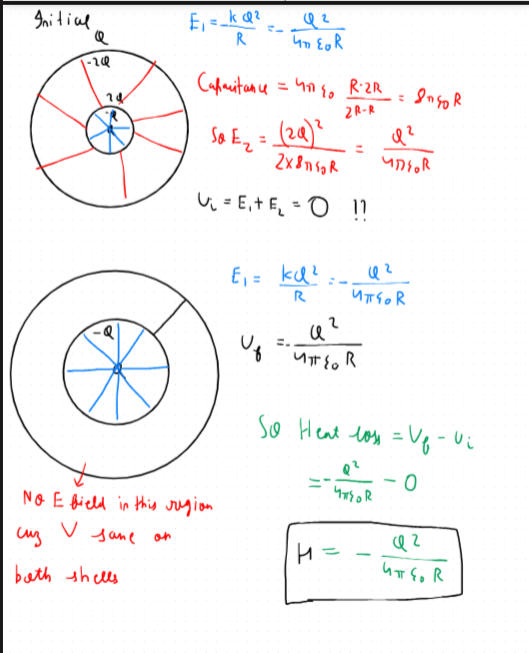 Initial
Q
-2Q
2Q
-Q
E₁ = kQ²/R = - Q²/4πε₀R
Capacitance = 4πε₀ R·2R/2R-R = 8πε₀R
So E₂ = (2Q)²/2×8πε₀R = Q²/4πε₀R
Uᵢ = E₁ + E₂ = 0 !!
-Q
E₁ = kQ²/R = - Q²/4πε₀R
U_f = - Q²/4πε₀R
So Heat loss = U_f - Uᵢ
= - Q²/4πε₀R - 0
H = - Q²/4πε₀R
No E field in this region
cuz V same on
both shells